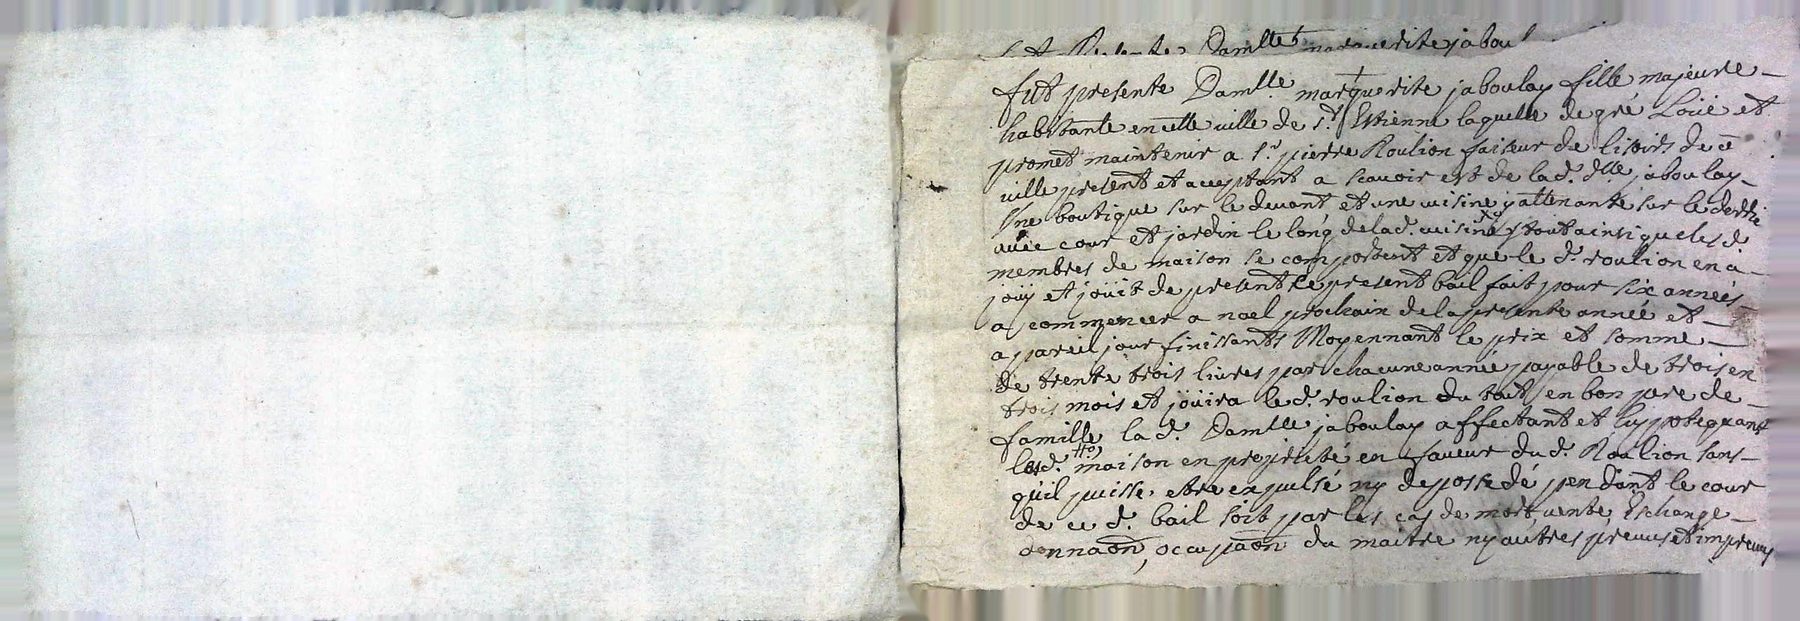 Damlle marguerite jaboul
fut presente Damlle. marguerite jaboulay fille majeure
habitante en cette ville de st. Estienne laquelle de gré Loüe et
promet maintenir a sr. pierre Roulion faiseur de lisoirs de ce
ville present et acceptant a scavoir est de lad. dlle. jaboulay
Une boutique sur le devant et une cuisine y attenante sur le derrie
avec cour et jardin le long de lad. cuisine tout ainsi que lesd.
membres de maison se comportent et que le d. roulion en a
jouy et joüit de present le present bail fait pour six années
a commencer a noel prochain de la presente année et
a pareil jour finissants Moyennant le prix et somme
De trente trois livres par chacune année payable de trois en
trois mois et joüira le d. roulion du tout en bon pere de
famille la d. Damlle jaboulay affectant et hypotequant
lesd. maison en proprieté en faveur du d. Roulion sans
qu'il puisse etre expulsé ny depossedé pendant le cour
de ce d. bail soit par les cas de mort, vente, Eschange
donnaon, occupaon du maitre ny autres preveus et impreveus